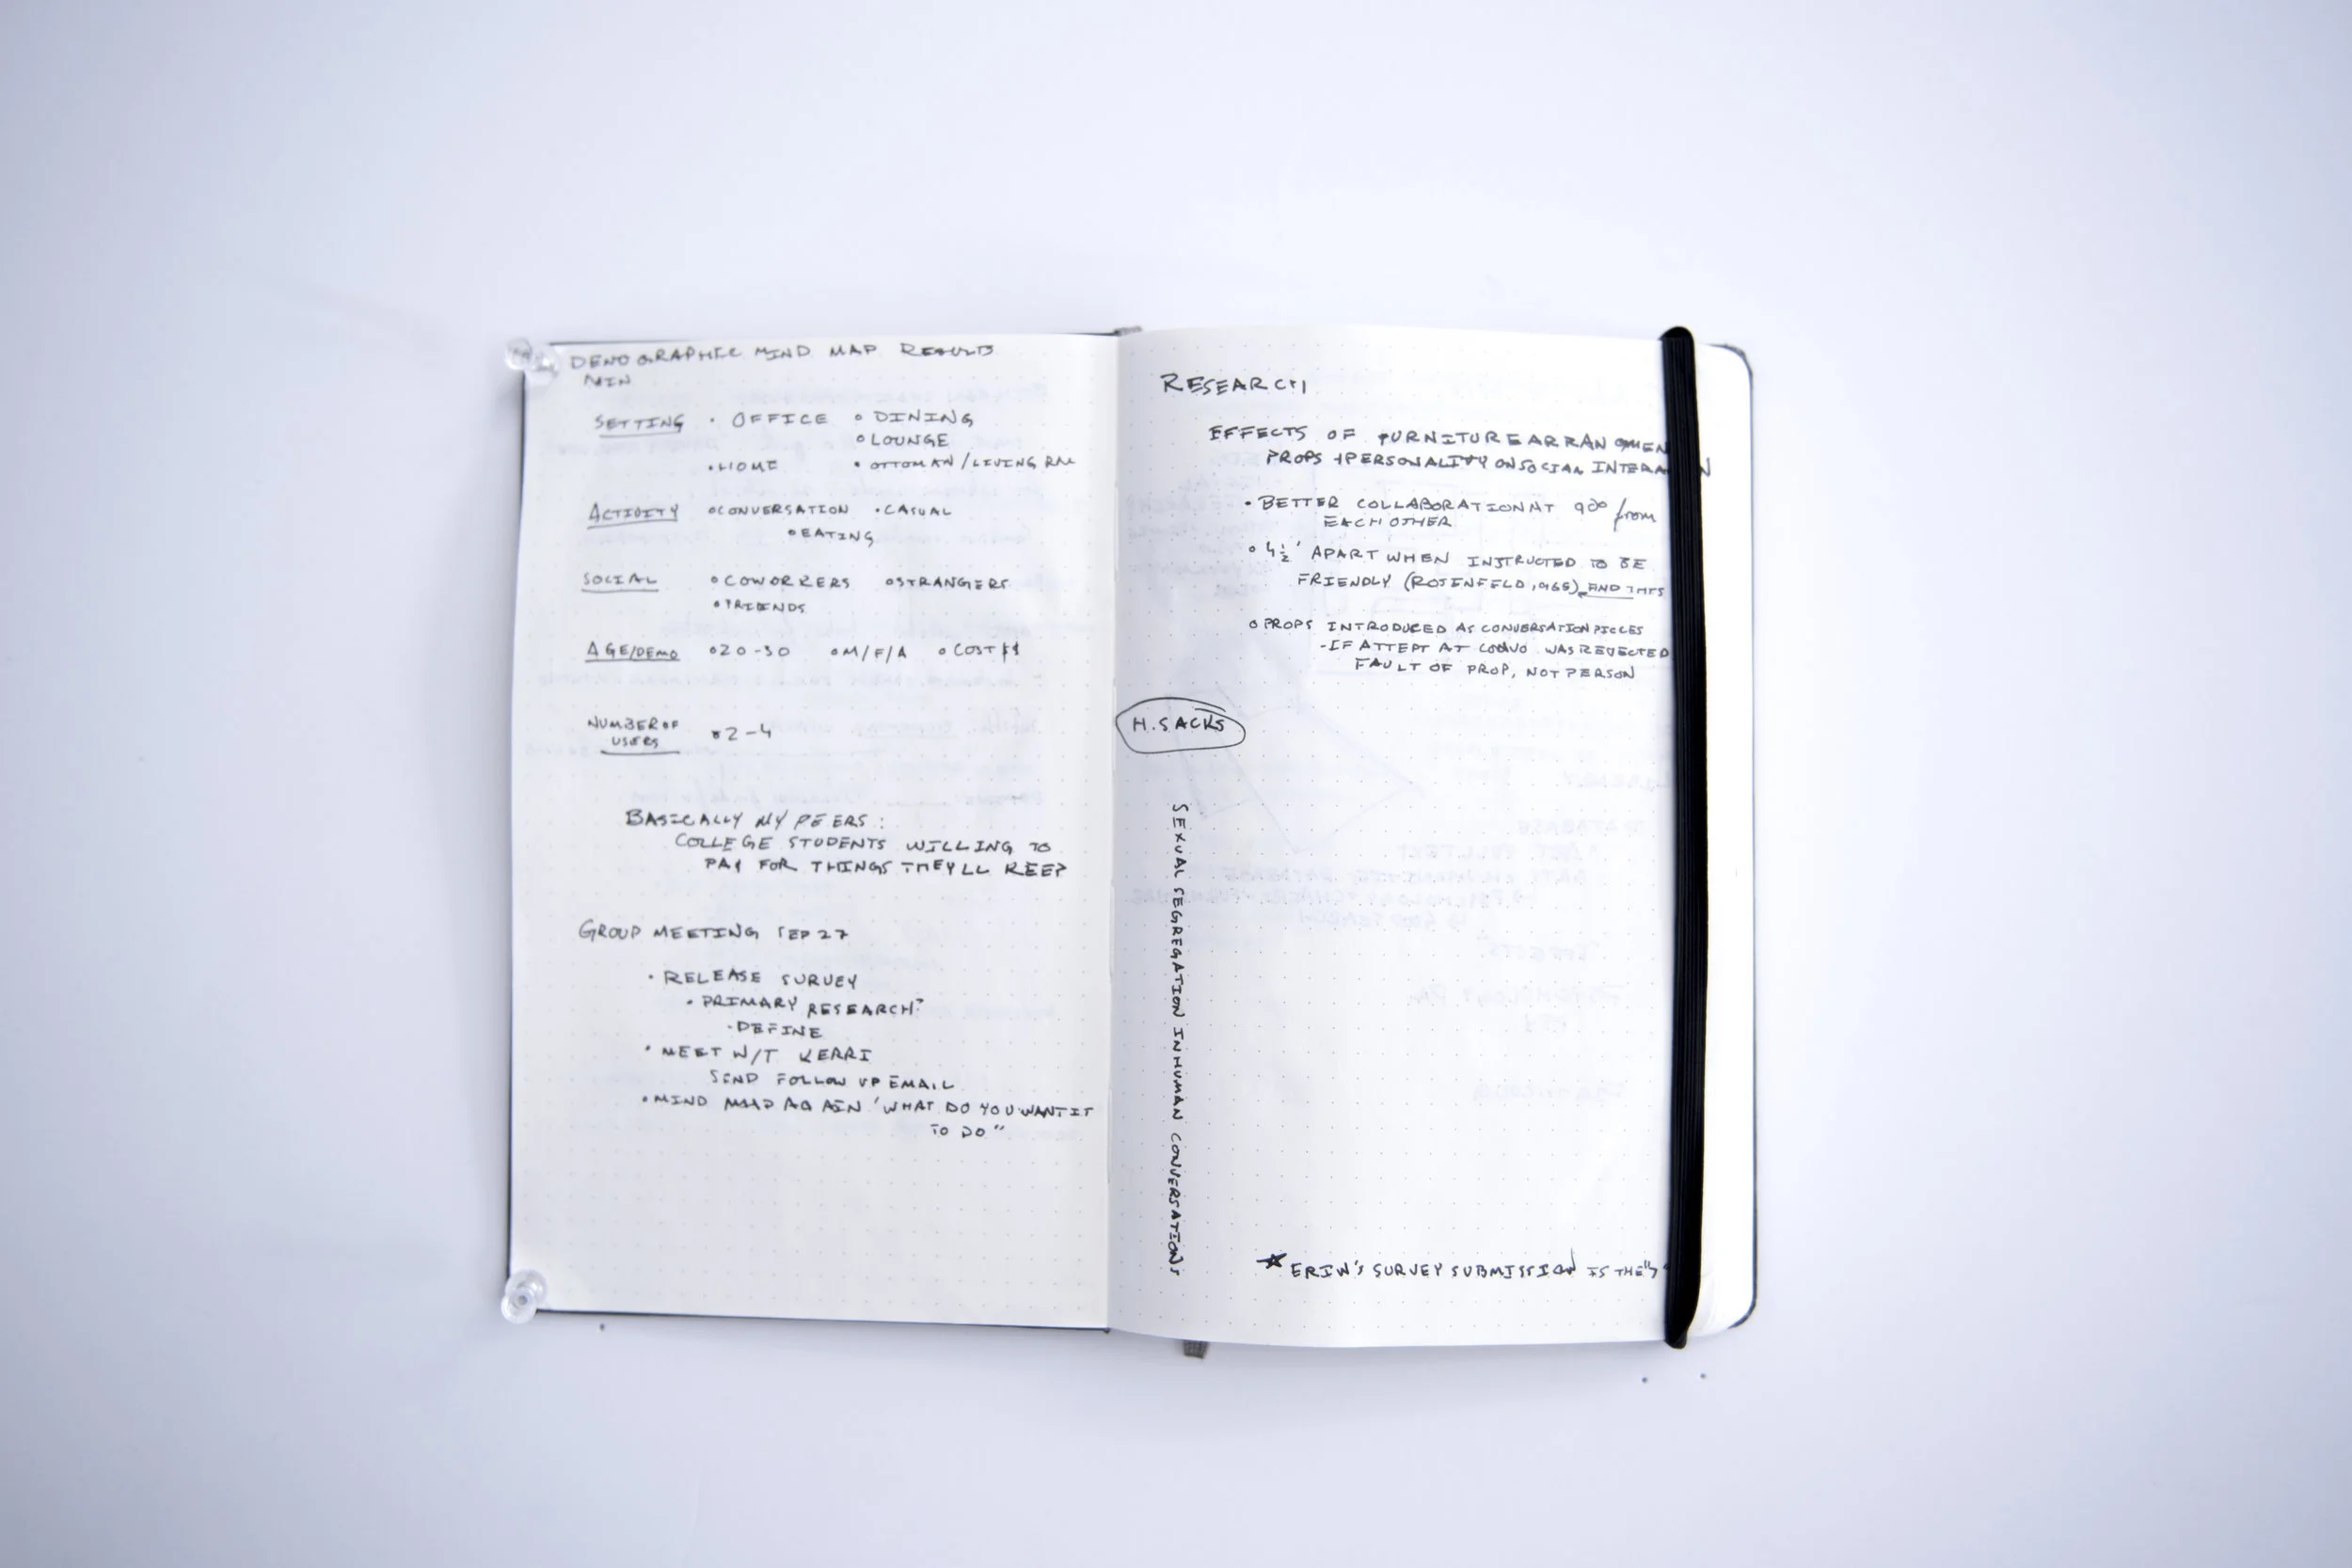 DEMOGRAPHIC MIND MAP RESULTS
MIN
SETTING • OFFICE • DINING
• LOUNGE
• HOME • OTTOMAN/LIVING RM
ACTIVITY • CONVERSATION • CASUAL
• EATING
SOCIAL • COWORKERS • STRANGERS
• FRIENDS
AGE/DEMO • 20-30 • M/F/A • COST $$
NUMBER OF
USERS • 2-4
BASICALLY MY PEERS:
COLLEGE STUDENTS WILLING TO
PAY FOR THINGS THEY'LL KEEP
GROUP MEETING SEP 27
• RELEASE SURVEY
• PRIMARY RESEARCH?
- DEFINE
• MEET W/T KERRI
SEND FOLLOW UP EMAIL
• MIND MAP AGAIN "WHAT DO YOU WANT IT
TO DO"
RESEARCH
EFFECTS OF FURNITURE ARRANGMEN
PROPS + PERSONALITY ON SOCIAL INTERA N
• BETTER COLLABORATION AT 90° from
EACH OTHER
• 4½' APART WHEN INSTRUCTED TO BE
FRIENDLY (ROSENFELD, 1965)
• PROPS INTRODUCED AS CONVERSATION PIECES
- IF ATTEPT AT CONVO WAS REJECTED
FAULT OF PROP, NOT PERSON
H. SACKS
SEXUAL SEGREGATION IN HUMAN CONVERSATIONS
★ ERIN'S SURVEY SUBMISSION IS THE